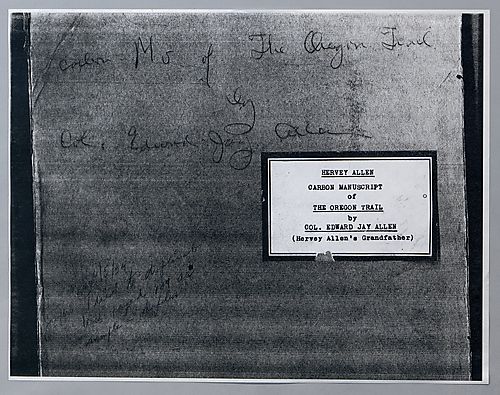 Carbon MS of The Oregon Trail
by
Col. Edward Jay Allen
HERVEY ALLEN
CARBON MANUSCRIPT
of
THE OREGON TRAIL
by
COL. EDWARD JAY ALLEN
(Hervey Allen's Grandfather)